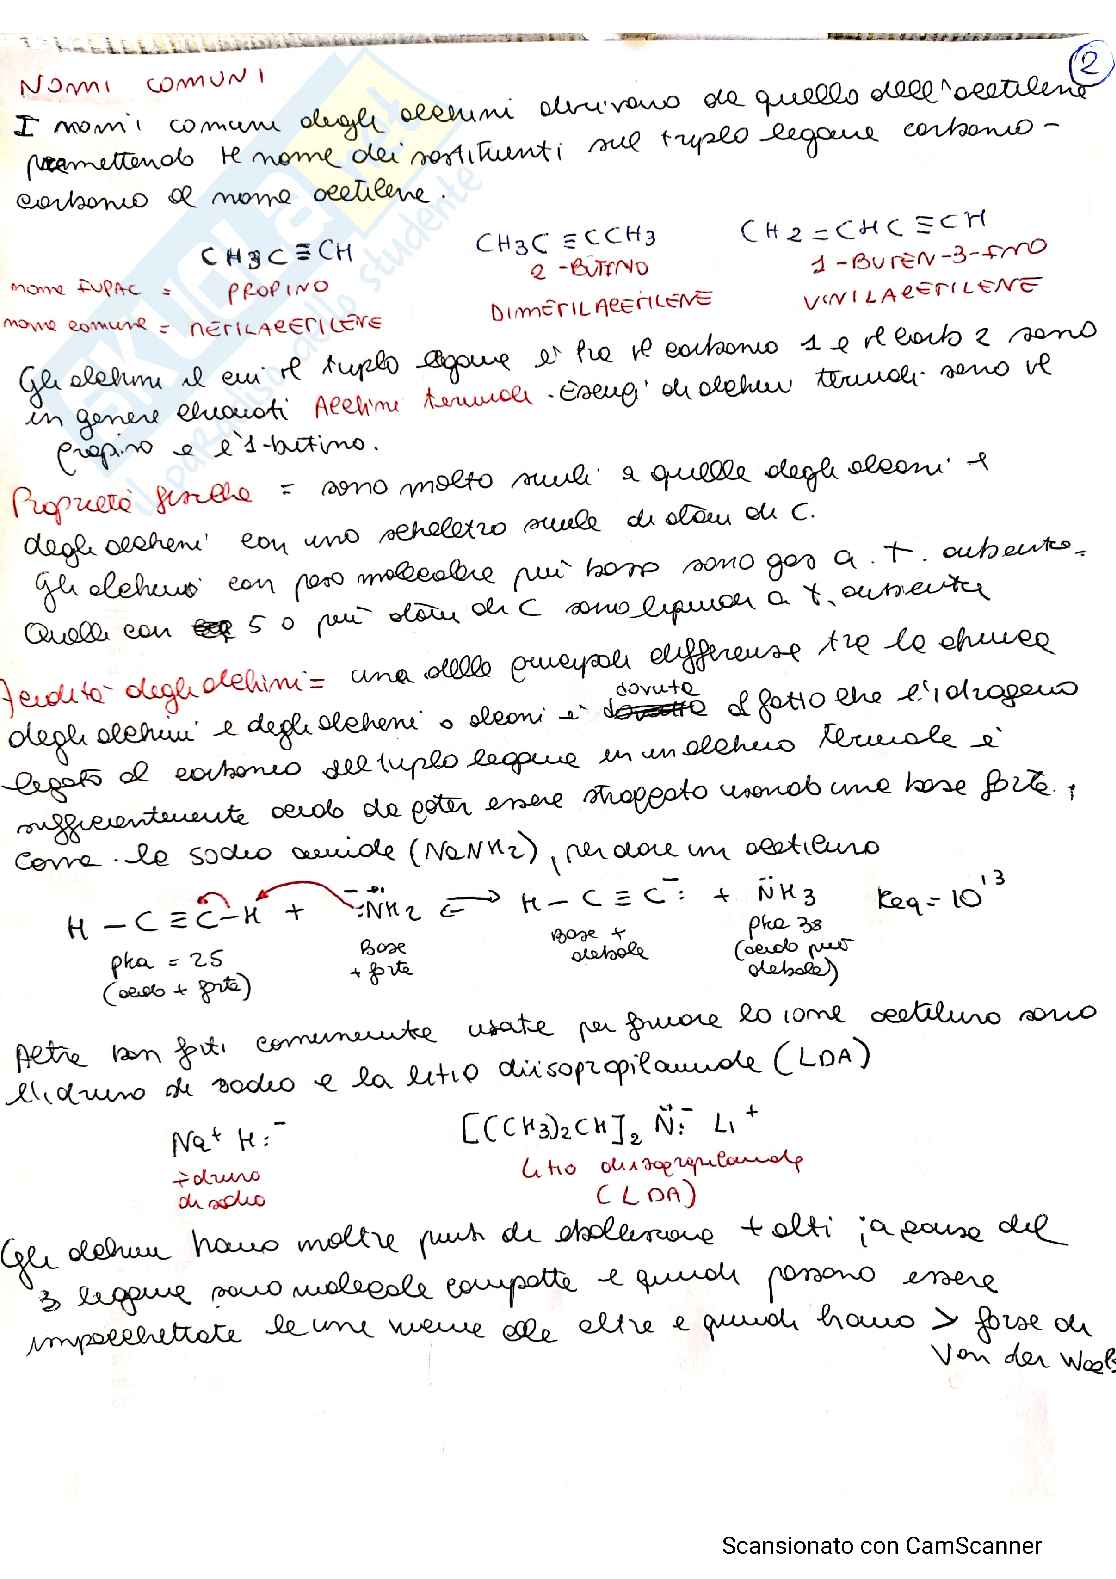 2
NOMI COMUNI
I nomi comuni degli alchini derivano da quello dell'acetilene
premettendo il nome dei sostituenti sul triplo legame carbonio-
carbonio al nome acetilene.
CH3C≡CH CH3C≡CCH3 CH2=CHC≡CH
nome IUPAC = PROPINO 2-BUTINO 1-BUTEN-3-INO
nome comune = METILACETILENE DIMETILACETILENE VINILACETILENE
Gli alchini il cui il triplo legame è tra il carbonio 1 e il carb 2 sono
in genere chiamati Alchini terminali. Esempi di alchini terminali sono il
propino e l'1-butino.
Proprietà fisiche = sono molto simili a quelle degli alcani e
degli alcheni con uno scheletro simile di atomi di C.
Gli alchini con peso molecolare più basso sono gas a t. ambiente.
Quelli con 5 o più atomi di C sono liquidi a t. ambiente
Acidità degli alchini = una delle principali differenze tra la chimica
degli alchini e degli alcheni o alcani è dovuta al fatto che l'idrogeno
legato al carbonio del triplo legame in un alchino terminale è
sufficientemente acido da poter essere strappato usando una base forte,
come la sodio amide (NaNH2), per dare un acetiluro
H-C≡C-H + :N̈H2⁻ ⇌ H-C≡C:⁻ + N̈H3 Keq = 10¹³
pka = 25 (acido + forte) Base + forte Base + debole pka 38 (acido più debole)
Altre basi forti comunemente usate per formare lo ione acetiluro sono
l'idruro di sodio e la litio diisopropilammide (LDA)
Na⁺ H:⁻ [(CH3)2CH]2 N̈:⁻ Li⁺
idruro di sodio litio diisopropilammide (LDA)
Gli alchini hanno inoltre punti di ebollizione + alti; a causa del
3 legame sono molecole compatte e quindi possono essere
impacchettate le une vicine alle altre e quindi hanno > forze di
Van der Waals
SKUOLA.net
il paradiso dello studente
Scansionato con CamScanner